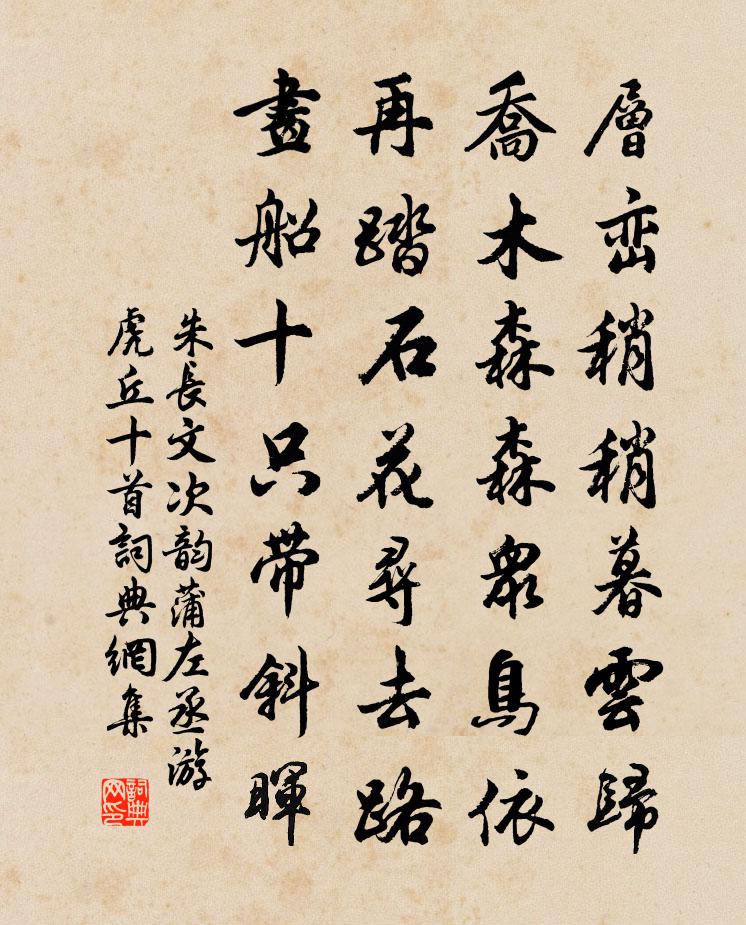 層巒稍稍暮雲歸
喬木森森衆鳥依
再踏石花尋去路
畫船十只帶斜暉
朱長文次韵蒲左丞游
虎丘十首詞典網集
詞典
网印